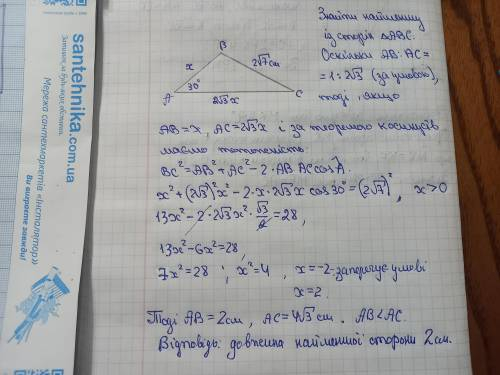 santehnika.com.ua
Мережа сантехмаркетів «Інсталятор»
Ви виграєте завжди!
Знайти найменшу
із сторін △ABC.
Оскільки AB:AC=
=1:2√3 (за умовою),
тоді, якщо
B
x
2√7 cm
30°
A
2√3x
C
AB=x, AC=2√3x і за теоремою косинусів
маємо тотожність
BC²=AB²+AC²-2·AB·AC cosA.
x²+(2√3)²x²-2·x·2√3x cos30°=(2√7)², x>0
13x²-2·2√3x²·√3/2=28,
13x²-6x²=28,
7x²=28; x²=4, x=-2-заперечує умові
x=2.
Тоді AB=2см, AC=4√3 cm. AB<AC.
Відповідь: довжина найменшої сторони 2см.